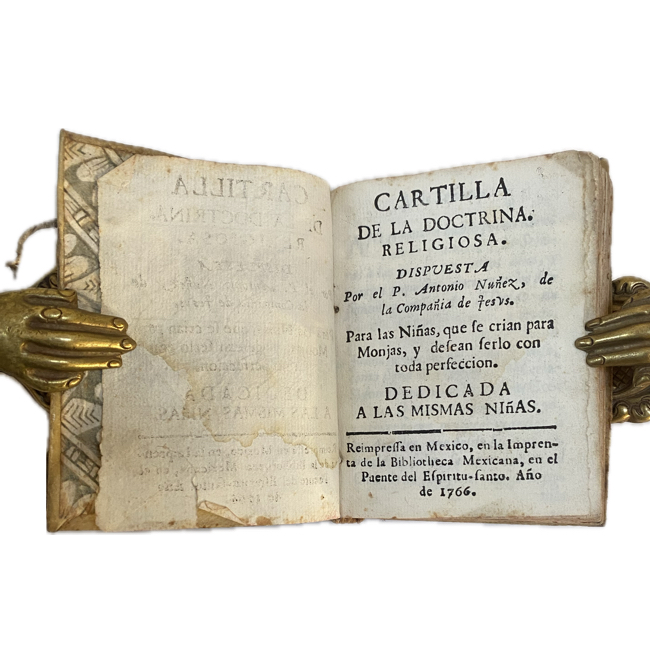 CARTILLA
DE LA DOCTRINA.
RELIGIOSA.
DISPVESTA
Por el P. Antonio Nuñez, de
la Compañia de Jesvs.
Para las Niñas, que ſe crian para
Monjas, y deſean ſerlo con
toda perfeccion.
DEDICADA
A LAS MISMAS NIñAS.
Reimpreſſa en Mexico, en la Impren-
ta de la Bibliotheca Mexicana, en el
Puente del Eſpiritu-ſanto. Año
de 1766.